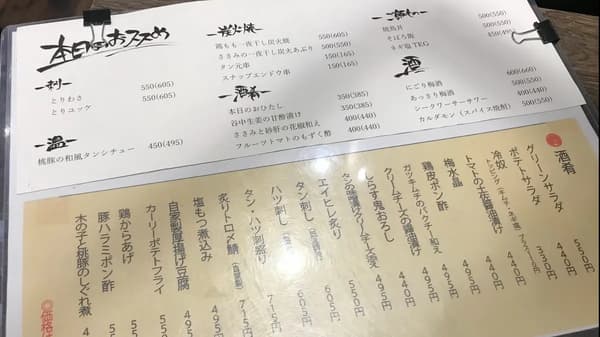 本日のおススメ
刺
とりわさ 550(605)
とりユッケ 550(605)
温
桃豚の和風タンシチュー 450(495)
炭火焼
鶏もも一夜干し炭火焼 550(605)
ささみの一夜干し炭火あぶり 500(550)
タン元串 150(165)
スナップエンドウ串 150(165)
酒肴
本日のおひたし 350(385)
谷中生姜の甘酢漬け 350(385)
ささみと砂肝の花椒和え 400(440)
フルーツトマトのもずく酢 400(440)
焼鳥丼 500(550)
そぼろ飯 500(550)
ネギ塩TKG
酒
にごり梅酒 600(660)
あっさり梅酒 500(550)
シークワーサーサワー 400(440)
カルダモン(スパイス焼酎) 500(550)
酒肴
グリーンサラダ 550円
ポテトサラダ 330円
冷奴 440円
トマトの土佐醤油漬け 440円
梅水晶 495円
鶏皮ポン酢 440円
ガツキムチのパクチー和え 495円
しらす鬼おろし 495円
クリームチーズの醤油漬け 495円
タンの味噌漬けクリームチーズ添え
エイヒレ炙り 605円
タン刺し 605円
ハツ刺し 715円
タン・ハツ刺盛り 715円
炙りトロ〆鯖
塩もつ煮込み
自家製厚揚げ豆腐
カーリーポテトフライ
鶏からあげ
豚ハラミポン酢
木の子と桃豚のしぐれ煮
◎価格は